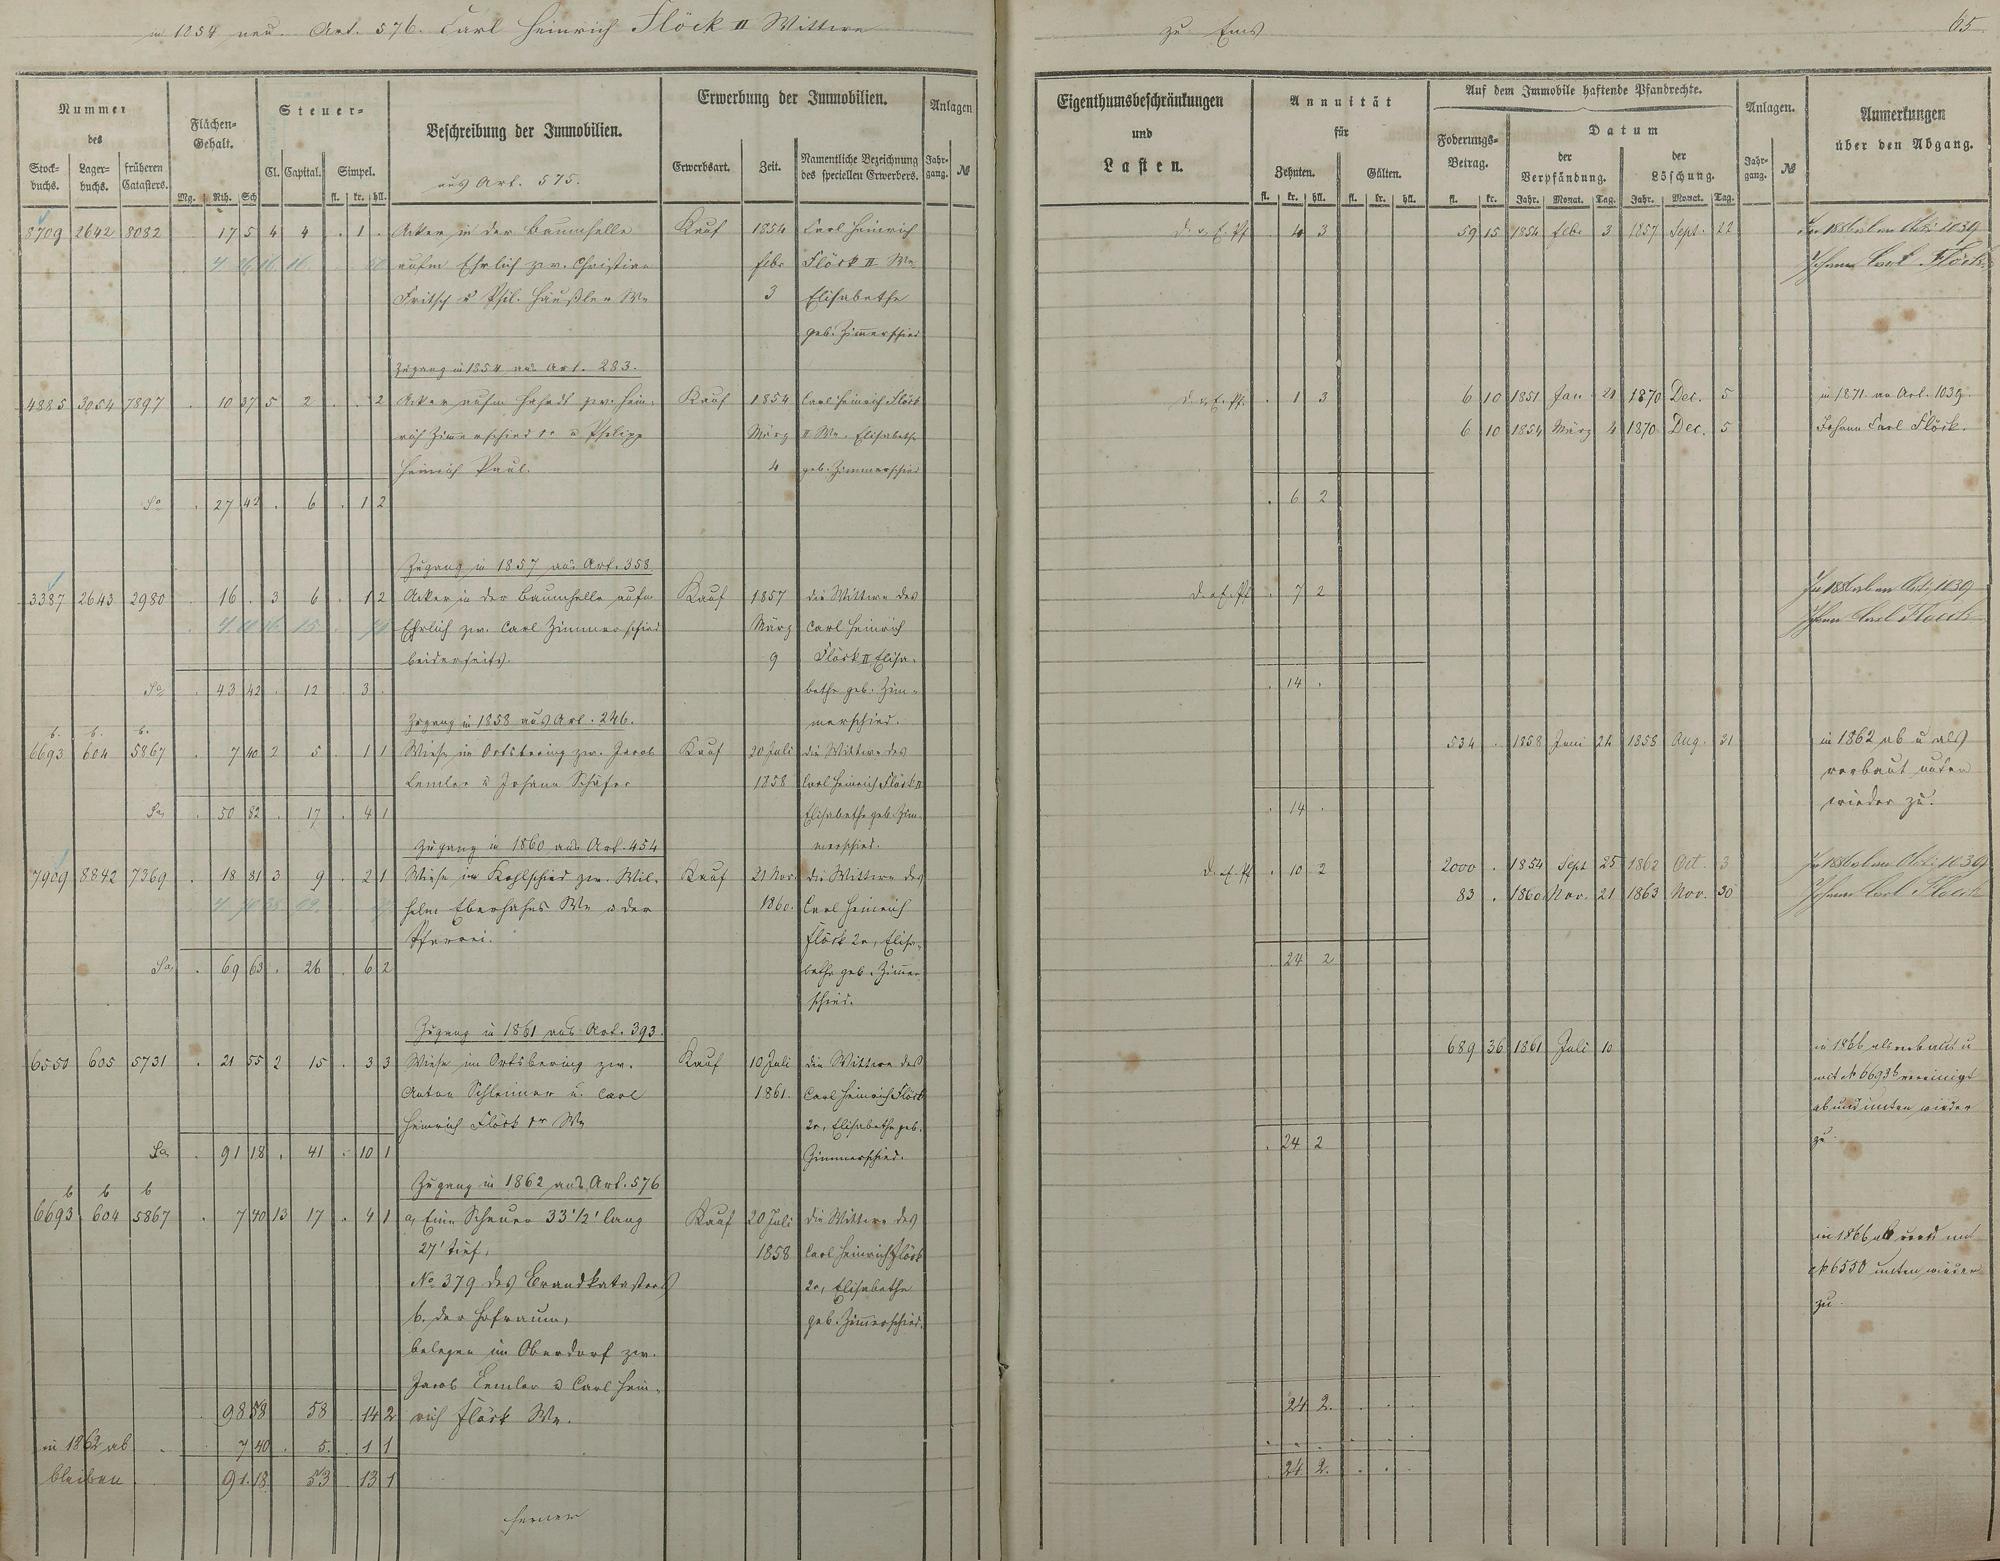 in 1854 neu. Art. 576. Carl Heinrich Flöck II Wittwe
zu Ems
65
Nummer
des
Stock-
buchs.
Lager-
buchs.
früheren
Catasters.
Flächen-
Gehalt.
Mg. Rth. Sch
Steuer-
Cl. Capital. Simpel.
fl. kr. hll.
Beschreibung der Immobilien.
aus Art. 575.
Erwerbung der Immobilien.
Erwerbsart. Zeit.
Namentliche Bezeichnung
des speciellen Erwerbers.
Anlagen
Jahr-
gang. №
Eigenthumsbeschränkungen
und
Lasten.
Annuität
für
Zehnten. Gülten.
fl. kr. hll. fl. kr. hll.
Auf dem Immobile haftende Pfandrechte.
Foderungs-
Betrag.
fl. kr.
Datum
der
Verpfändung.
Jahr. Monat. Tag.
der
Löschung.
Jahr. Monat. Tag.
Anlagen.
Jahr-
gang. №
Anmerkungen
über den Abgang.
8709 2642 8082 . 17 5 4 4 . 1 . Acker in der Baumhelle Kauf 1854 Carl Heinrich
aufm Ehrlich zw. Christian Febr Flöck II We
Fritsch u Phil. Häußler We 3 Elisabethe
geb. Zimmerschied
D. z. E. Pf. . 4 3 59 15 1854 Febr 3 1857 Sept. 22
Johann Carl Flöck
Zugang in 1854 aus Art. 283.
4885 3054 7897 . 10 37 5 2 . . 2 Acker aufm zw. Hein- Kauf 1854 Carl Heinrich Flöck
rich Zimmerschied u Philipp März II We. Elisabethe
Heinrich Paul. 4 geb. Zimmerschied
D. z. E. Pf. . 1 3 6 10 1851 Jan 1870 Dec. 5 in 1871 an Art. 1039.
6 10 1854 März 4 1870 Dec. 5 Johann Carl Flöck.
Sa . 27 42 . 6 . 1 2
. 6 2
Zugang in 1857 aus Art. 358
3387 2643 2980 . 16 . 3 6 . 1 2 Acker in der Baumhelle aufm Kauf 1857 die Wittwe des
Ehrlich zw. Carl Zimmerschied März Carl Heinrich
beiderseits. 9 Flöck II Elisa-
bethe geb. Zim-
merschied.
. 7 2
Johann Carl Flöck
Sa . 43 42 . 12 . 3 .
. 14 .
Zugang in 1858 aus Art. 246.
b. b. b.
6693 604 5867 . 7 40 2 5 . 1 1 Wiese in Ortsbering zw. Jacob Kauf 20 Juli die Wittwe des
Lemler u Johann Schäfer 1858 Carl Heinrich Flöck II
Elisabethe geb. Zim-
merschied.
534 . 1858 Juni 24 1858 Aug. 31 in 1862 ab u als
verbaut unten
wieder zu.
Sa . 50 82 . 17 . 4 1
. 14 .
Zugang in 1860 aus Art. 454
7909 8842 7369 . 18 81 3 9 . 2 1 Wiese im Kohlschied zw. Wil- Kauf 21 Nov. die Wittwe des
helm Eberhahns We u der 1860. Carl Heinrich
Pfarrei. Flöck 2r, Elisa-
bethe geb. Zimmer-
schied.
. 10 2 2000 . 1854 Sept 25 1862 Oct. 3
83 . 1860 Nov. 21 1863 Nov. 30
Johann Carl Flöck
Sa . 69 63 . 26 . 6 2
. 24 2
Zugang in 1861 aus Art. 393.
6550 605 5731 . 21 55 2 15 . 3 3 Wiese im Ortsbering zw. Kauf 10 Juli die Wittwe des
Anton Schleimer u. Carl 1861. Carl Heinrich Flöck
Heinrich Flöck We 2r, Elisabethe geb.
Zimmerschied.
689 36 1861 Juli 10 in 1866 als verbaut u
mit № 6693b vereinigt
ab und unten wieder
zu.
Sa . 91 18 . 41 . 10 1
. 24 2
Zugang in 1862 aus Art. 576
b b b
6693 604 5867 . 7 40 13 17 . 4 1 a, Eine Scheuer 33'½' lang Kauf 20 Juli die Wittwe des
27' tief, 1858 Carl Heinrich Flöck
No 379 des Brandkatasters 2r, Elisabethe
b, der Hofraum, geb. Zimmerschied.
belegen im Oberdorf zw.
Jacob Lemler u Carl Hein-
rich Flöck We.
in 1866 ab und mit
№ 6550 unten wieder
zu.
98 58 58 . 14 2
24 2.
in 1862 ab . 7 40 . 5. . 1 1
bleiben . 91.18 53 13 1
24 2.
ferner